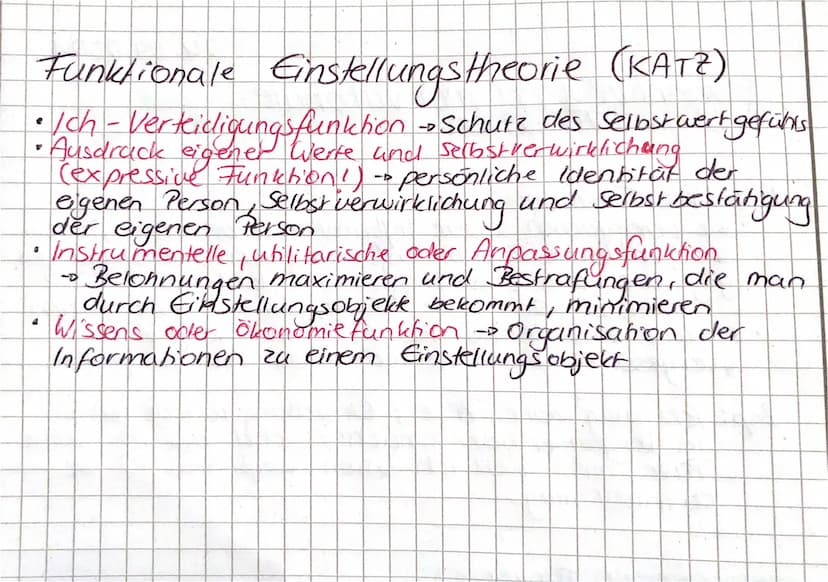 Funktionale Einstellungstheorie (KATZ)
• Ich-Verteidigungsfunktion → Schutz des Selbstwertgefühls
• Ausdruck eigener Werte und Selbstverwirklichung
(expressive Funktion!) → persönliche Identität der
eigenen Person, Selbstverwirklichung und Selbstbestätigung
der eigenen Person
• Instrumentelle, utilitarische oder Anpassungsfunktion
→ Belohnungen maximieren und Bestrafungen, die man
durch Einstellungsobjekte bekommt, minimieren
• Wissens oder Ökonomiefunktion → Organisation der
Informationen zu einem Einstellungsobjekt